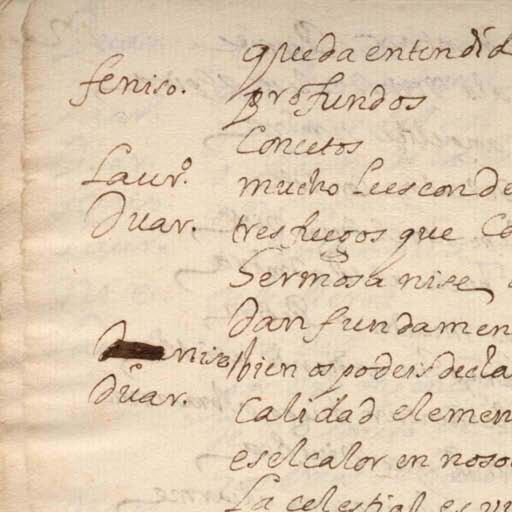 queda entendid
feniso. profundos
Concetos
Laur.º mucho le esconde
Duar. tres fuegos que Co
hermosa nise
dan fundamen
niso bien os podeis decla
Duar. Calidad elemen
es el calor en noso
La celestial es vi